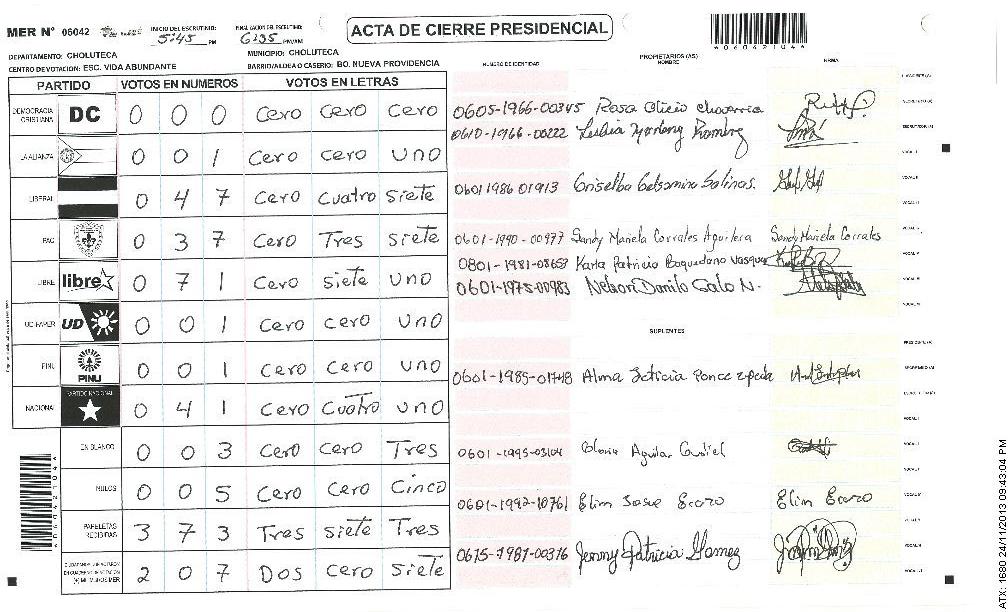 MER N° 06042 INICIO DEL ESCRUTINIO: 5:45 PM FINALIZACION DEL ESCRUTINIO: 6:35 PM/AM
ACTA DE CIERRE PRESIDENCIAL
*060421044*
DEPARTAMENTO: CHOLUTECA MUNICIPIO: CHOLUTECA
CENTRO DE VOTACION: ESC. VIDA ABUNDANTE BARRIO/ALDEA O CASERIO: BO. NUEVA PROVIDENCIA
NUMERO DE IDENTIDAD PROPIETARIOS (AS) NOMBRE FIRMA
PARTIDO VOTOS EN NUMEROS VOTOS EN LETRAS
DEMOCRACIA CRISTIANA DC 0 0 0 Cero Cero Cero
LA ALIANZA 0 0 1 Cero Cero Uno
LIBERAL 0 4 7 Cero Cuatro Siete
PAC 0 3 7 Cero Tres Siete
LIBRE libre 0 7 1 Cero Siete Uno
UD-FAPER UD 0 0 1 Cero Cero Uno
PINU PINU 0 0 1 Cero Cero Uno
NACIONAL PARTIDO NACIONAL 0 4 1 Cero Cuatro Uno
EN BLANCO 0 0 3 Cero Cero Tres
NULOS 0 0 5 Cero Cero Cinco
PAPELETAS RECIBIDAS 3 7 3 Tres Siete Tres
2 0 7 Dos Cero Siete
0605-1966-00345 Rosa
0610-1966-00222 Leslia Ramirez
0601 1986 01913 Griselba Getsamina Salinas
0601-1990-00977 Sandy Mariela Corrales Aguilera Sandy Mariela Corrales
0801-1981-08653 Karla Patricia Baquedano Vasquez
0601-1975-00983 Nelson Danilo Galo N.
SUPLENTES
0601-1985-01748 Alma Leticia Ponce Zepeda
0601-1995-03104 Gloria Aguilar
0601-1992-10761 Elim Josue Erazo Elim Erazo
0615-1981-00316 Jenny Patricia Gomez
ATX: 1680 24/11/2013 09:43:04 PM